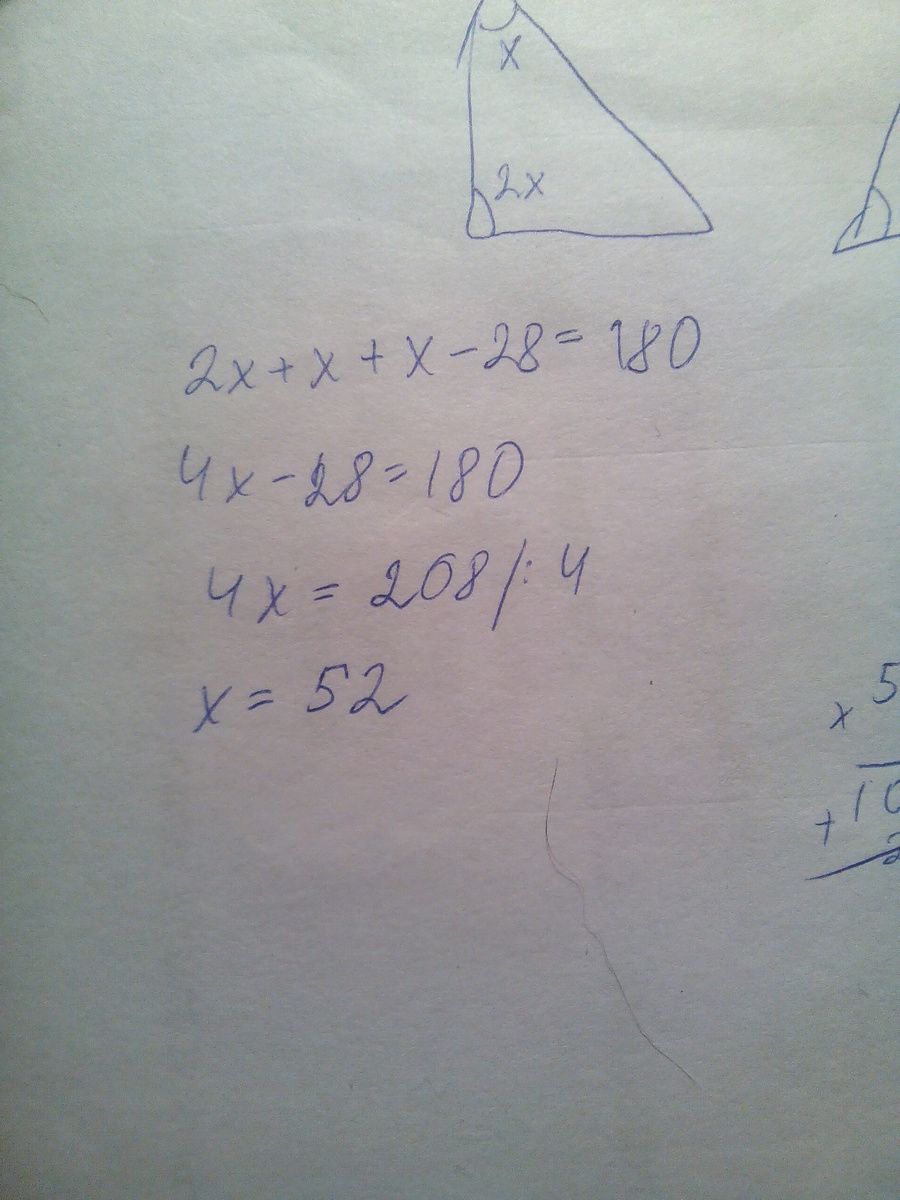 x
2x
2x + x + x - 28 = 180
4x - 28 = 180
4x = 208 /: 4
x = 52
x 5
+ 10
2